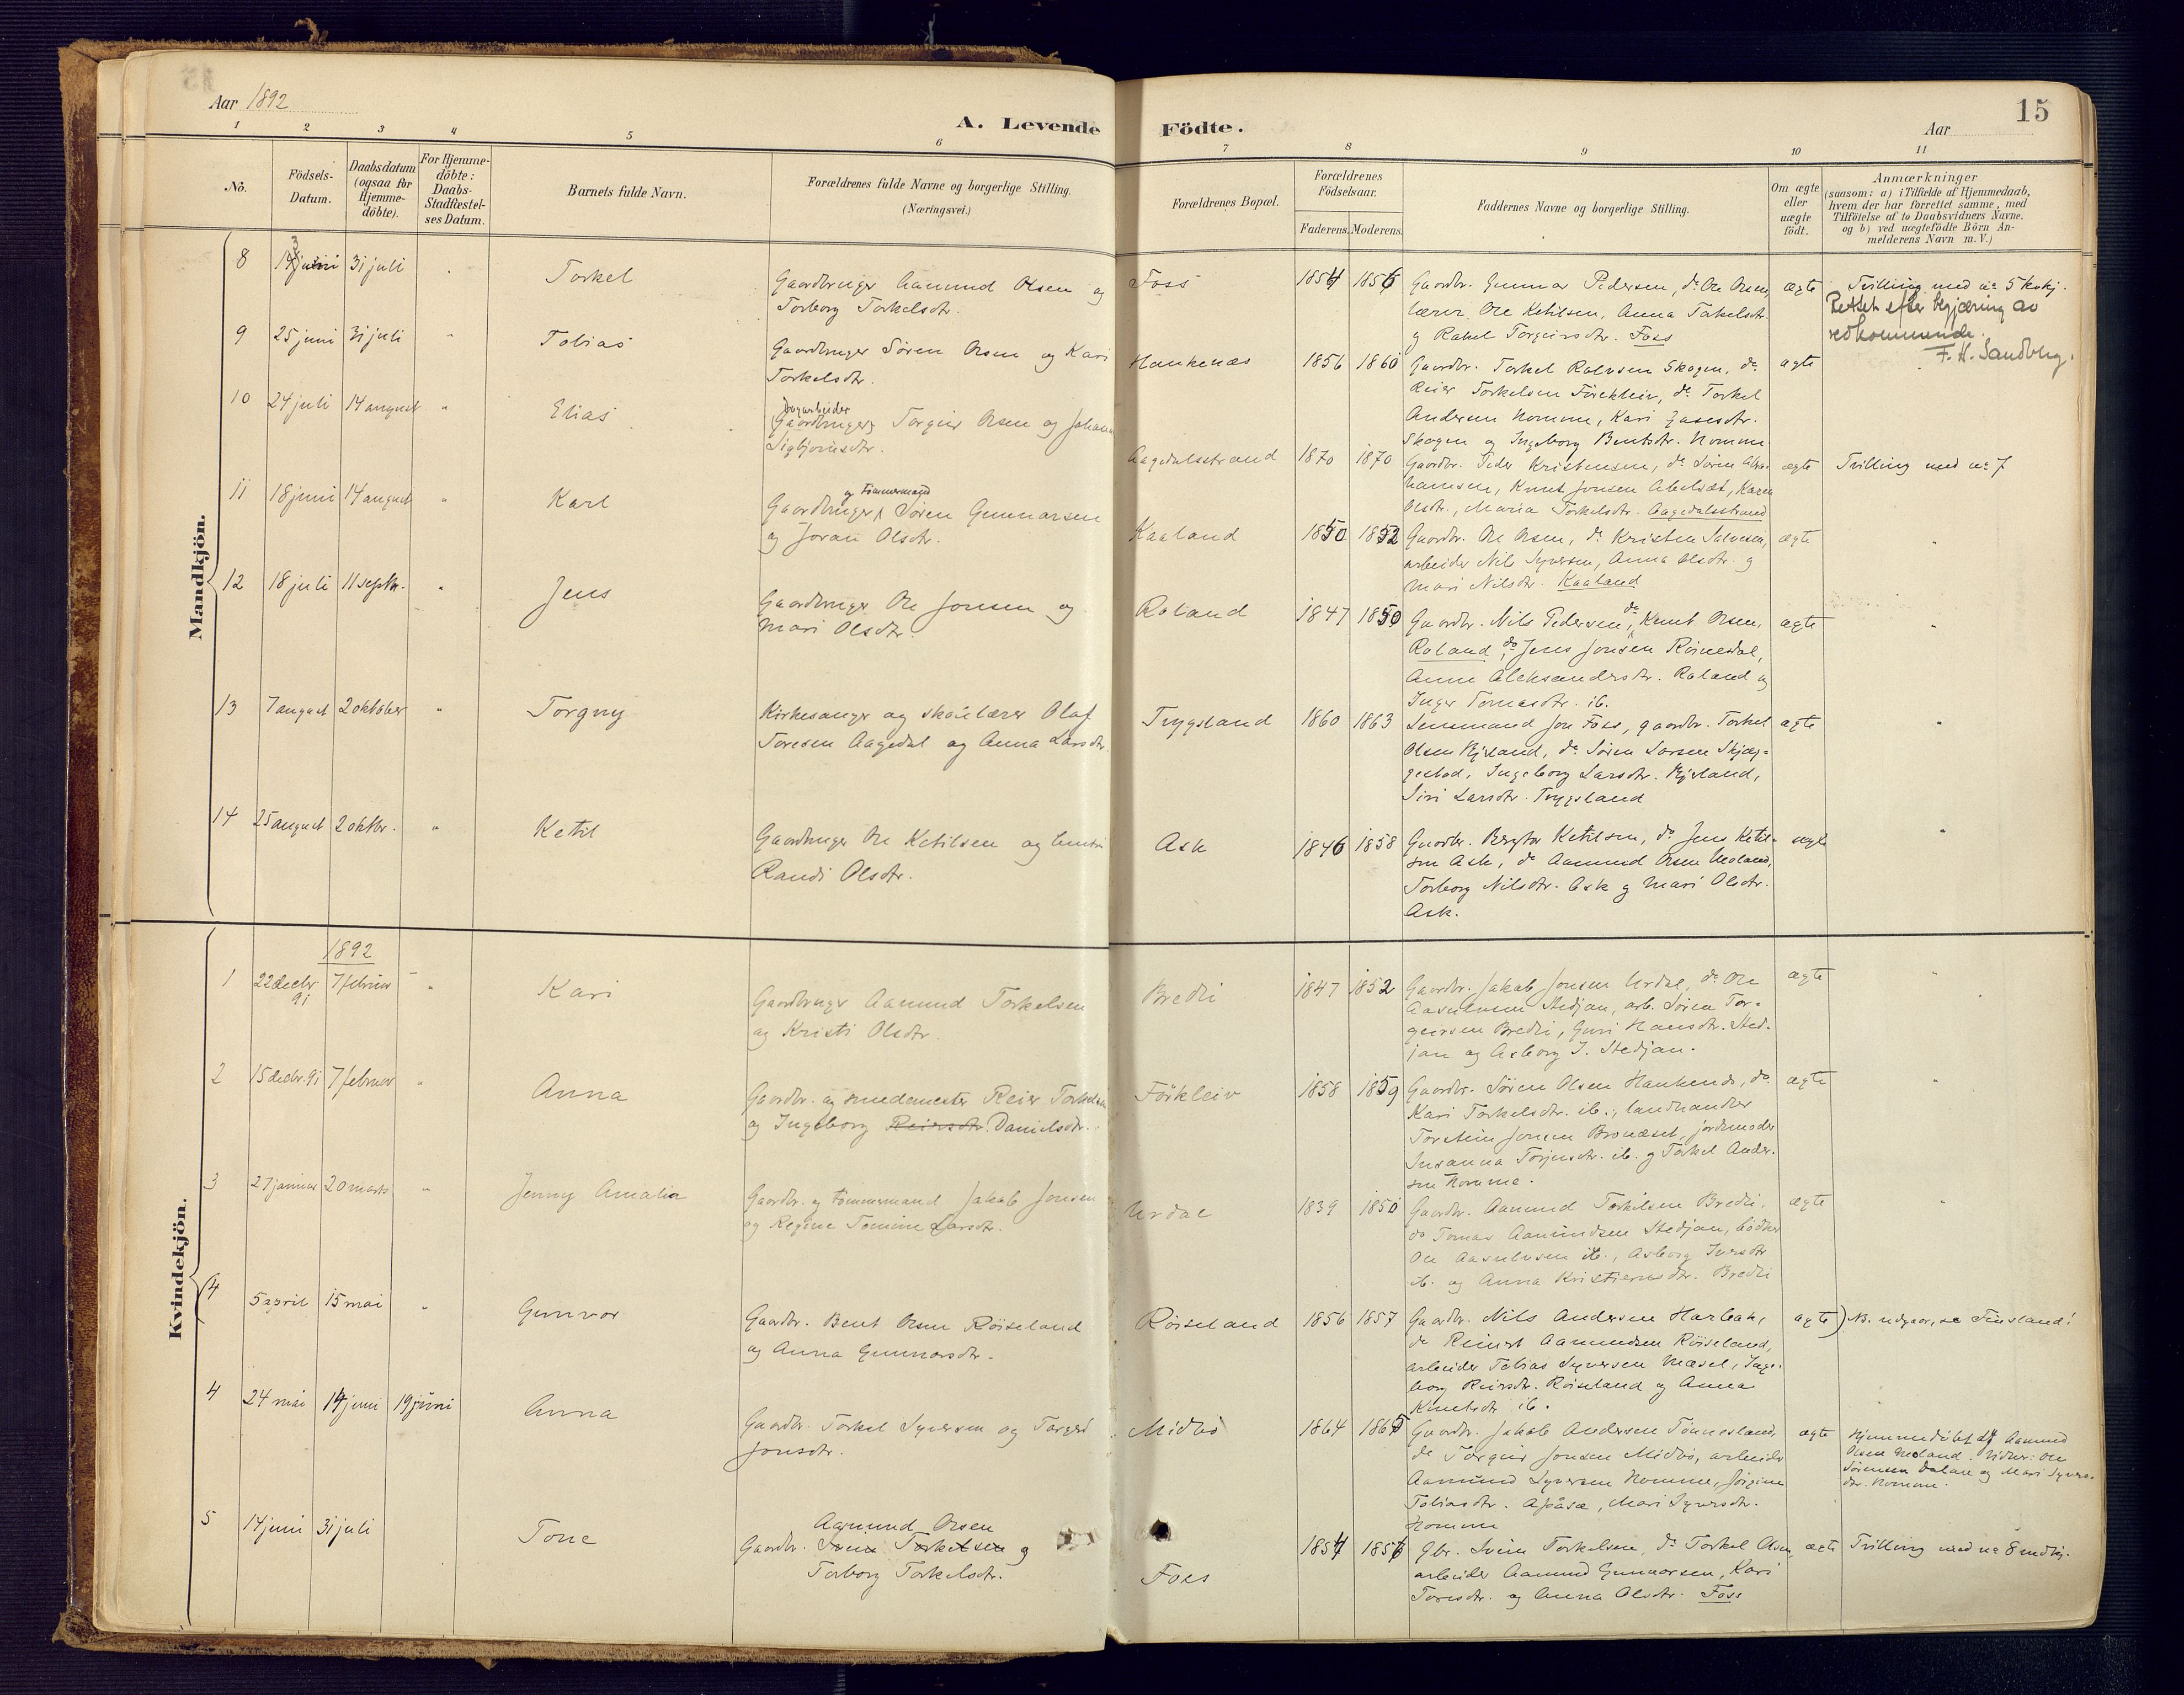 Aar 1892
A. Levende Födte.
Aar
15
1 2 3 4 5 6 7 8 9 10 11
No.
Födsels-Datum.
Daabsdatum (ogsaa for Hjemme-döbte).
For Hjemme-döbte: Daabs-Stadfæstel-ses Datum.
Barnets fulde Navn.
Forældrenes fulde Navne og borgerlige Stilling.
(Næringsvei.)
Forældrenes Bopæl.
Forældrenes Födselsaar.
Faderens. Moderens.
Faddernes Navne og borgerlige Stilling.
Om ægte eller uægte födt.
Anmærkninger
(saasom: a) i Tilfælde af Hjemmedaab,
hvem der har forrettet samme, med
Tilföielse af to Daabsvidners Navne.
og b) ved uægtefödte Börn An-
melderens Navn m.V.)
Mandkjön.
8 13 juni 31 juli Torkel
Gaardbruger Aamund Olsen og
Torborg Torkelsdtr.
Foss 1854 1856
Gaardbr. Gunnar Pedersen, do Ole Olsen,
lærer Ole Ketilsen, Anna Torkelsdtr.
og Rakel Torgeirsdtr. Foss
ægte
Tvilling med no 5 kvkj.
Rettet efter begjæring av
vedkommende.
F. H. Sandberg.
9 25 juni 31 juli " Tobias
Gaardbruger Sören Olsen og Kari
Torkelsdtr.
Haukenæs 1856 1860
Gaardbr. Torkel Rolvsen Skogen, do
Reier Torkelsen Förekleiv, do Torkel
Andersen Homme, Kari
Skogen og Ingeborg Bentsdtr. Homme
ægte
10 24 juli 14 august " Elias
Dagarbeider
(Gaardbruger) Torgeir Olsen og Johanne
Sigbjörnsdtr.
Aagedalsstrand 1870 1870
Gaardbr. Peder Kristensen, do Sören Abra-
hamsen, Knut Jonsen Abelset, Karen
Olsdtr., Maria Torkelsdtr. Aagedalsstrand
ægte
Tvilling med no 7
11 18 juni 14 august " Karl
og Tömmermand
Gaardbruger Sören Gunnarsen
og Joran Olsdtr.
Kaaland 1850 1852
Gaardbr. Ole Olsen, do Kristen Salvesen,
arbeider Nils Syversen, Anna Olsdtr. og
Mari Nilsdtr. Kaaland
ægte "
12 18 juli 11 septbr. " Jens
Gaardbruger Ole Jonsen og
Mari Olsdtr.
Roland 1847 1850
Gaardbr. Nils Pedersen, do Knut Olsen,
Roland, do Jens Jonsen Röinesdal,
Anne Aleksandersdtr. Roland og
Inger Tomasdtr. ib.
ægte "
13 7 august 2 oktober " Torgny
Kirkesanger og skolelærer Olaf
Toresen Aagedal og Anna Larsdtr.
Trygsland 1860 1863
Lensmand Jon Foss, gaardbr. Torkel
Olsen Kjeland, do Sören Larsen Skjæg-
gestad, Ingeborg Larsdtr. Kjeland,
Siri Larsdtr. Trygsland
ægte "
14 25 august 2 oktbr. " Ketil
Gaardbruger Ole Ketilsen og hustru
Randi Olsdtr.
Ask 1846 1858
Gaardbr. Bergtor Ketilsen, do Jens Ketil-
sen Ask, do Aamund Olsen Uleland,
Torborg Nilsdtr. Ask og Mari Olsdtr.
Ask.
ægte "
Kvindekjön.
1892
1 22 decbr 91 7 februar " Kari
Gaardbruger Aamund Torkelsen
og Kristi Olsdtr.
Bredli 1847 1852
Gaardbr. Jakob Jonsen Urdal, do Ole
Aasulvsen Stedjan, arb. Sören Tor-
geirsen Bredli, Guri Hansdtr. Sted-
jan og Asborg I. Stedjan.
ægte "
2 15 decbr. 91 7 februar " Anna
Gaardbr. og smedemester Reier Torkelsen
og Ingeborg Reiersdtr. Danielsdtr.
Förkleiv 1858 1859
Gaardbr. Sören Olsen Haukenes, do
Kari Torkelsdtr. ib., landhandler
Torstein Jonsen Bronæset, jordmoder
Susanna Torjusdtr. ib. og Torkel Ander-
sen Homme.
ægte "
3 27 januar 20 marts " Jenny Amalia
Gaardbr. og tömmermand Jakob Jonsen
og Regine Tomine Larsdtr.
Urdal 1839 1850
Gaardbr. Aamund Torkilsen Bredli,
do Tomas Aamundsen Stedjan, bödker
Ole Aasulvsen ib., Asborg Iversdtr
ib. og Anna Kristiensdtr. Bredli
ægte "
(4 5 april 15 mai " Gunvor
Gaardbr. Bent Olsen Röiseland
og Anna Gunnarsdtr.
Röiseland 1856 1857
Gaardbr. Nils Andersen Harbak,
do Reinert Aamundsen Röiseland,
arbeider Tobias Syversen Mæsel, Inge-
borg Reiersdtr. Röiseland og Anna
Knutsdtr ib.
ægte) NB. udgaar, se Finsland!
4 24 mai 14 juni 19 juni Anna
Gaardbr. Torkel Syversen og Torgerd
Jonsdtr.
Midbö 1864 1865
Gaardbr. Jakob Andersen Tönnesland,
do Torgeir Jonsen Midbö, arbeider
Aamund Syversen Homme, Jörgine
Tobiasdtr. Apåsæ, Mari Syversdtr.
Homme
ægte
Hjemmedöbt af Aamund
Olsen Uleland. Vidner: Ole
Sörensen Dalane og Mari Syvers-
dtr. Homme.
5 14 juni 31 juli Tone
Aamund Olsen
Gaardbr. Svein Torkelsen og
Torborg Torkelsdtr.
Foss 1854 1856
Gbr. Svein Torkelsen, do Torkel Olsen,
arbeider Aamund Gunnarsen, Kari
Toresdtr. og Anna Olsdtr. Foss
ægte
Tvilling med no 8 mdkj.